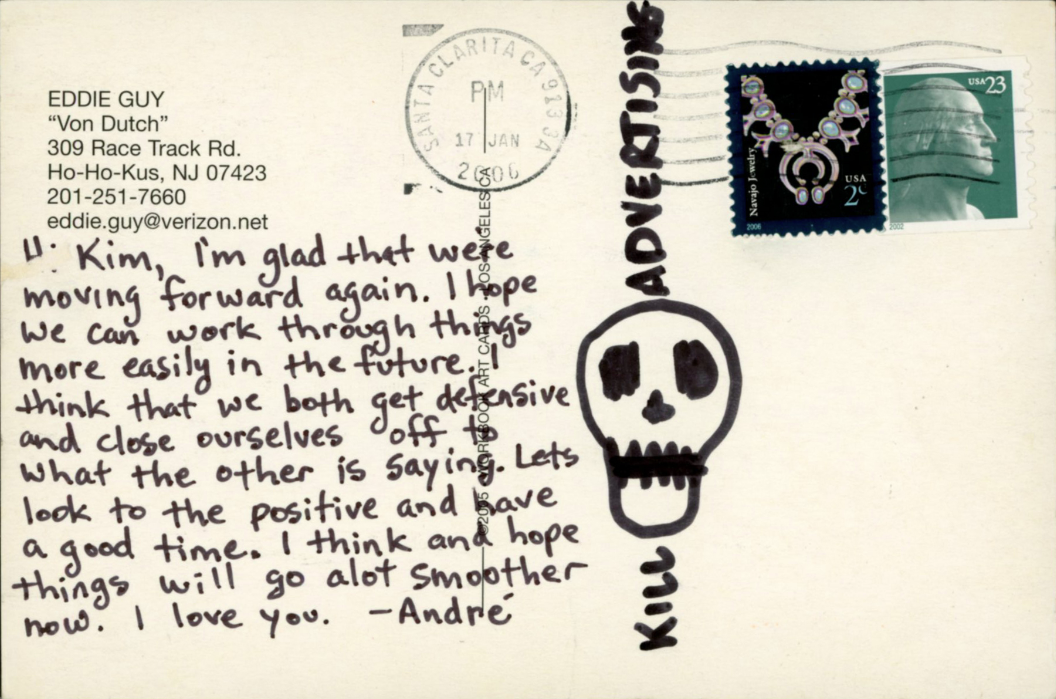 EDDIE GUY
“Von Dutch”
309 Race Track Rd.
Ho-Ho-Kus, NJ 07423
201-251-7660
eddie.guy@verizon.net
Hi Kim, I'm glad that were
moving forward again. I hope
we can work through things
more easily in the future. I
think that we both get defensive
and close ourselves off to
what the other is saying. Lets
look to the positive and have
a good time. I think and hope
things will go alot smoother
now. I love you. -André
SANTA CLARITA CA 913
PM
17 JAN
2006
©2005 WORKBOOK ART CARDS · LOS ANGELES CA
KILL ADVERTISING
Navajo Jewelry
USA
2c
2006
USA 23
2002